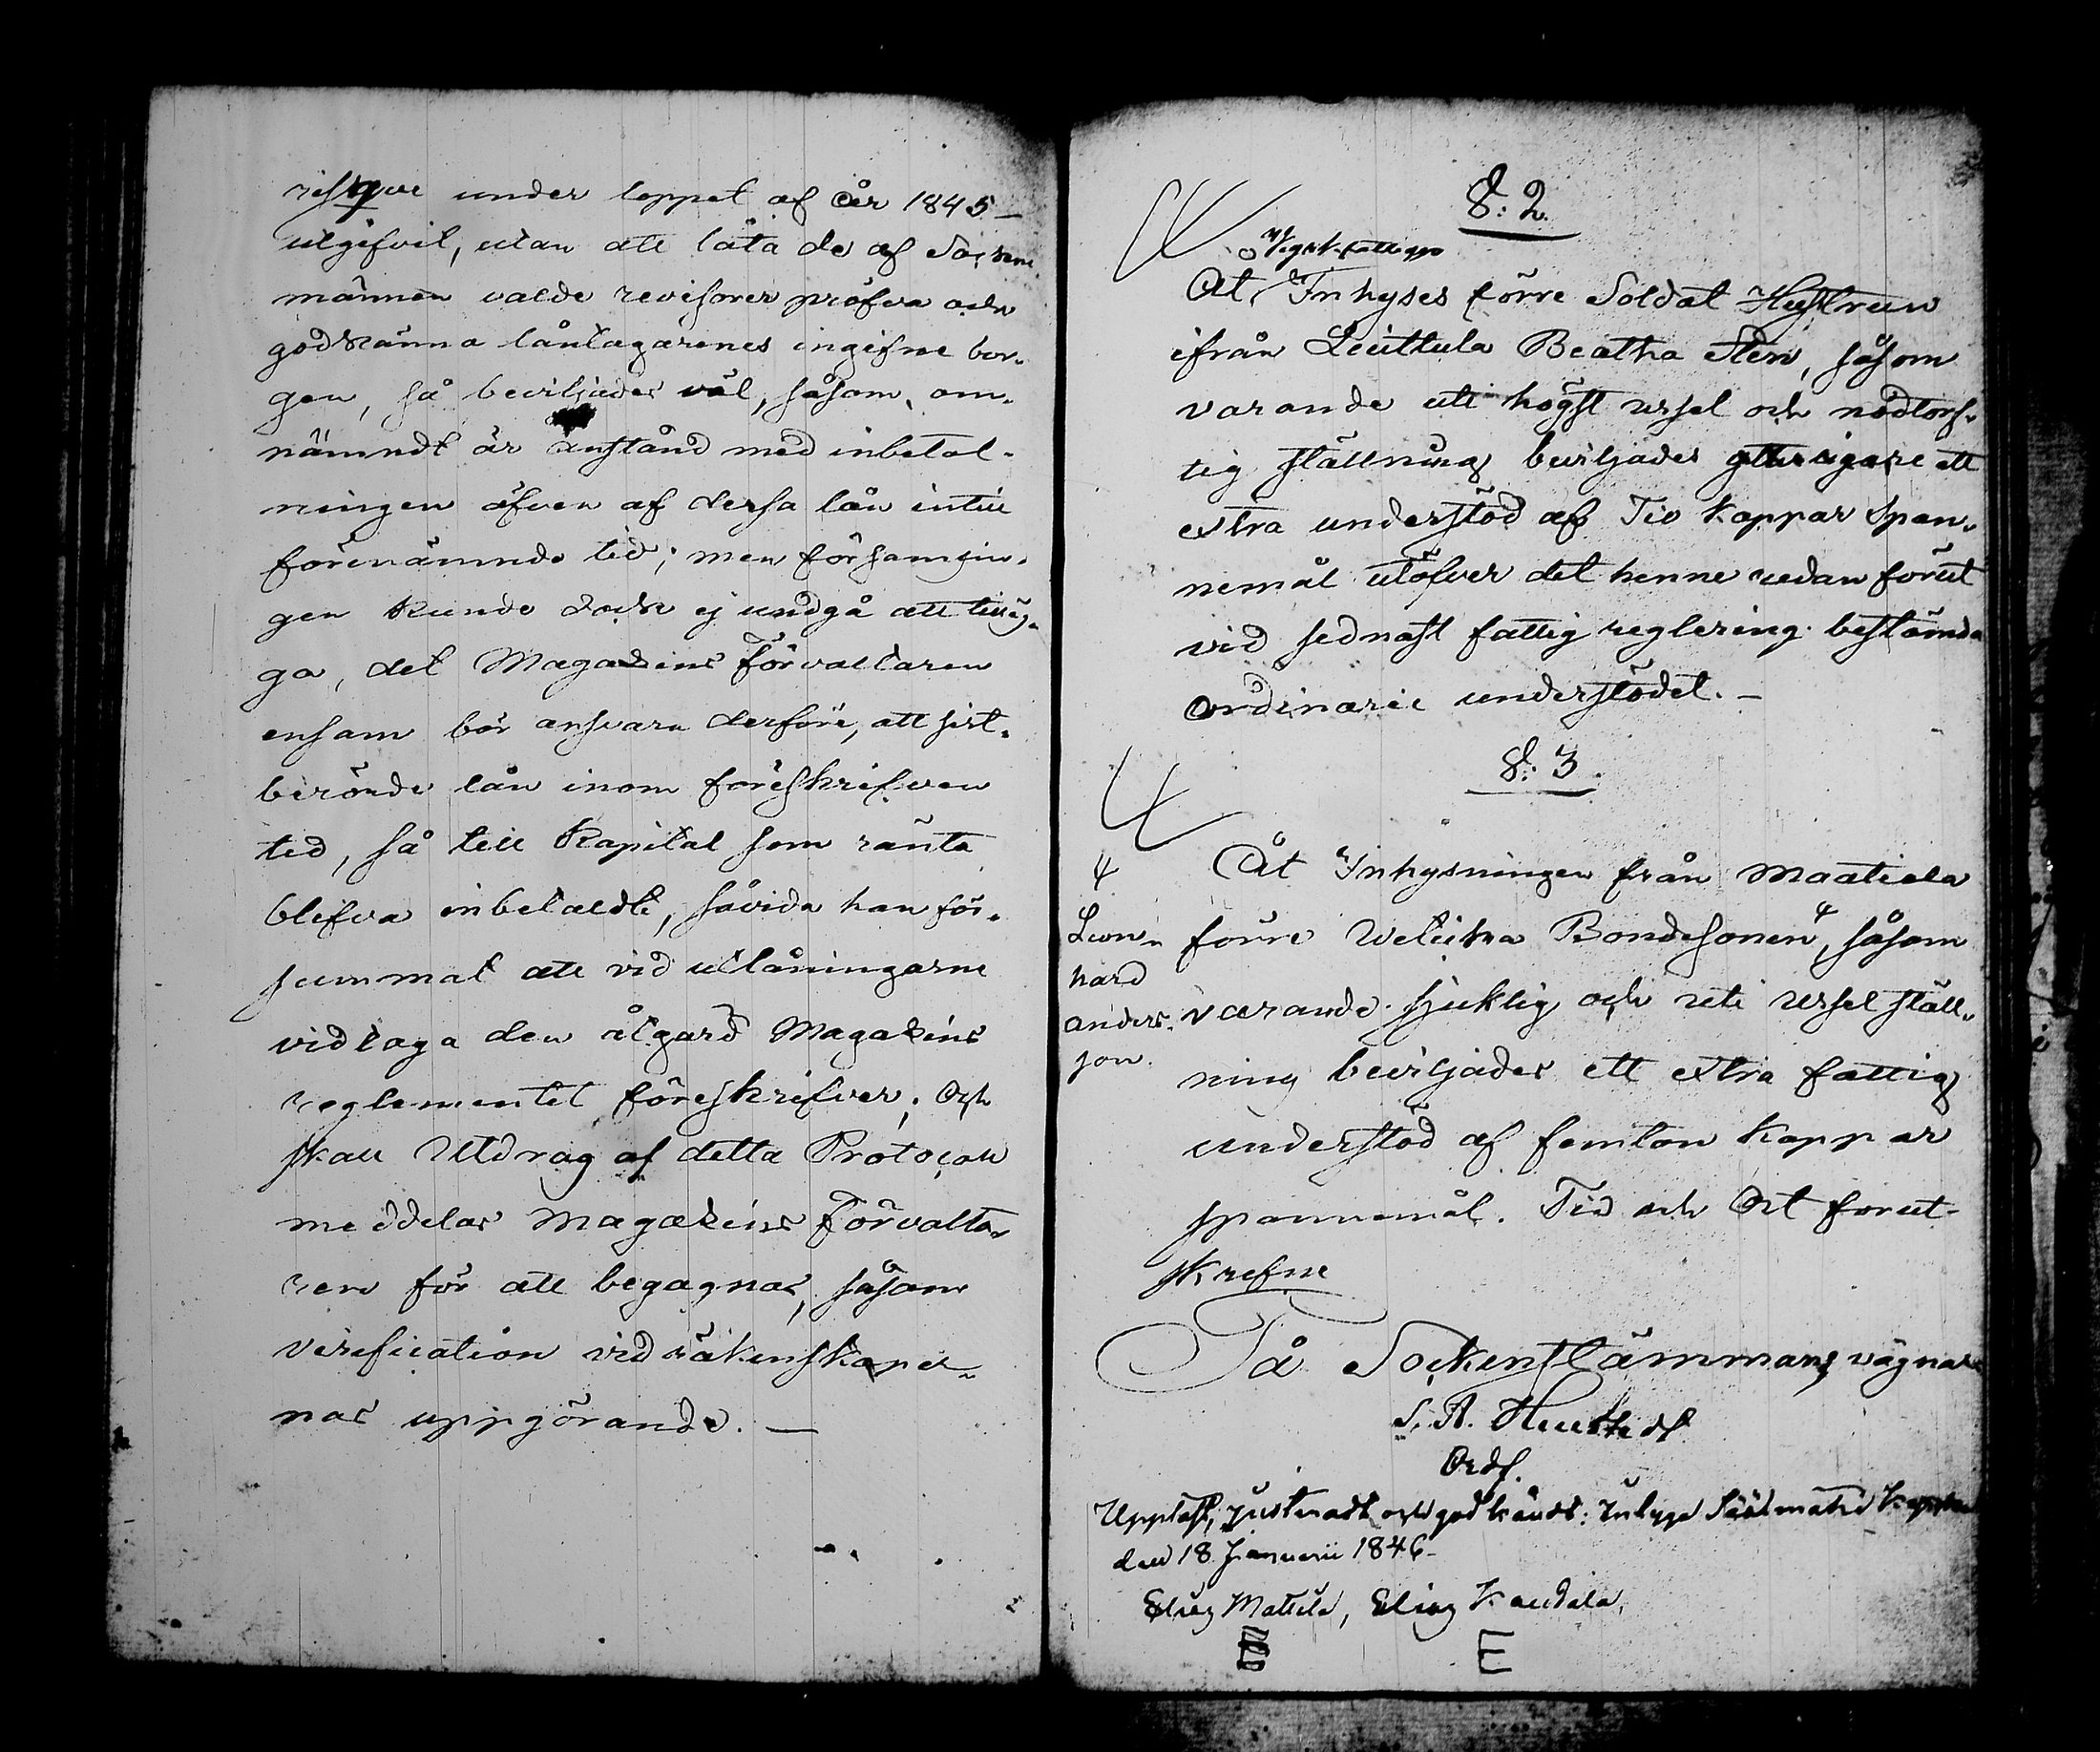 risque under loppet af år 1845 –
utgifvit, utan att låta de af Socken
männen valde revisorer pröfva och
godkänna låntagarenes ingifne bor-
gen, så beviljades väl, såsom om-
nämndt är anstånd med inbetal-
ningen äfven af dessa lån intill
förenämnde tid; men församlin-
gen kunde dock ej undgå att tilläg-
ga, det Magasins Förvaltaren
ensam bör ansvara derföre, att sist-
berörde lån inom föreskrifven
tid, så till Kapital som ränta
blifva inbetaldte, såvida han för-
summat att vid utlåningarne
vidtaga den åtgärd Magasins
reglementet föreskrifver; Och
skall Utdrag af detta Protocoll
meddelas Magasins Förvalta-
ren för att begagnas, såsom
verification vid räkenskaper-
nas uppgörande. —
§: 2.
Åt Inhyses förre Soldat Hustrun
ifrån Leuttula Beatha Sten, såsom
varande uti högst ussel och nödtorf-
tig ställning beviljades ytterligare ett
extra understöd af Tio Kappar Span-
nemål utöfver det henne redan förut
vid sednast fattig reglering bestämda
ordinarie understödet. –
§: 3.
Åt Inhysningen från Maatiala
förre Bondesonen, såsom
Leon-
hard
Anders-
son.
varande sjuklig och uti ussel ställ-
ning beviljades ett extra fattig
understöd af femton Kappar
spannemål. Tid och Ort förut-
skrefne
På Sockenstämmans vägnar
Ordf.
Uppläst, Justeradt och godkändt; intyga
den 18 Januarii 1846.
Elias Mattila, Elias
E